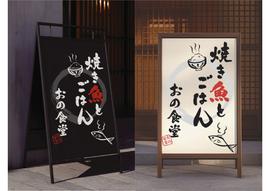 焼き魚と
ごはん
おの食堂
焼き魚と
ごはん
おの食堂